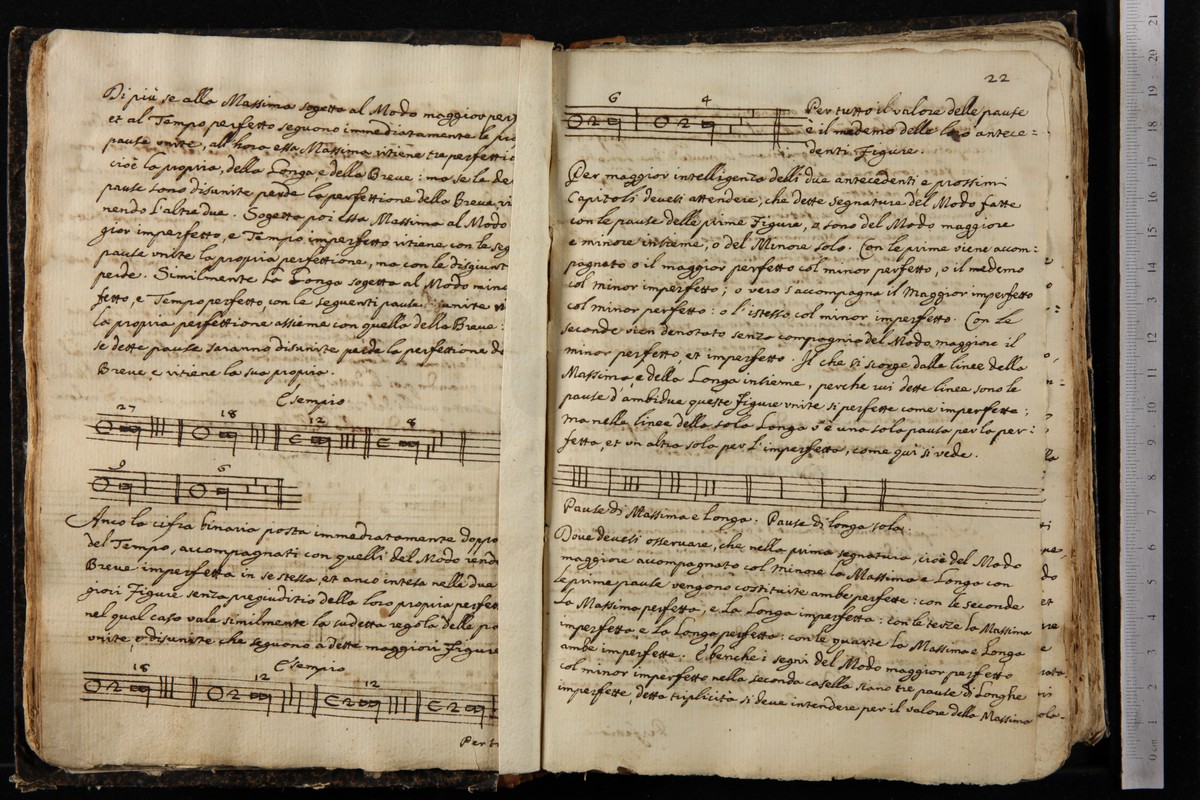 Di più se alla Massima sogetta al Modo maggior per
et al Tempo perfetto seguono immediatamente le pro
pause unite, all'hora essa Massima ritiene tre perfettio
cioè la propria, della Longa e della Breue: ma se le de
pause sono disunite perde la perfettione della Breue, ri
nendo L'altre due. Sogetta poi essa Massima al Modo
gior imperfetto, e Tempo imperfetto ritiene con le seg
pause unite la propria perfettione, ma con le disgiunt
perde. Similmente La Longa sogetta al Modo mino
fetto, e Tempo perfetto, con le seguenti pause unite ri
la propria perfettione assieme con quella della Breue:
se dette pause saranno disunite perde la perfettione de
Breue, e ritiene la sua propria.
Esempio
27 18 12 8
9 6
Anco la cifra binaria posta immediatamente doppo
del Tempo, accompagnati con quelli del Modo rende
Breue imperfetta in se stessa, et anco intesa nelle due
giori Figure senza pregiuditio della loro propria perfett
nel qual caso vale similmente la sudetta regola delle pa
unite, e disunite, che seguono a dette maggiori Figure
Esempio
18 12 12
Per t
22
6 4
Per tutto il valore delle pause
è il medemo delle loro antece=
denti Figure.
Per maggior intelligenza delli due antecedenti, e prossimi
Capitoli deuesi attendere, che dette segnature del Modo fatte
con le pause delle prime Figure, o sono del Modo maggiore
e minore insieme, o del Minore solo. Con le prime viene accom=
pagnato o il maggior perfetto col minor perfetto, o il medemo
col minor imperfetto; o vero s'accompagna il Maggior imperfetto
col minor perfetto: o l'istesso col minor imperfetto. Con le
seconde vien denotato senza compagnia del Modo maggiore il
minor perfetto, et imperfetto. Il che si scorge dalle linee della
Massima, e della Longa insieme, perche iui dette linee sono le
pause d'ambidue queste Figure unite si perfette come imperfette;
ma nelle linee della sola Longa v'è una sola pausa per la per=
fetta, et un altra sola per l'imperfetta, come qui si vede.
Pause di Massima e Longa. Pause di longa sola.
Doue deuesi osseruare, che nella prima segnatura, cioè del Modo
maggiore accompagnato col minore la Massima e Longa con
le prime pause vengono costituite ambe perfette: con le seconde
La Massima perfetta, e La Longa imperfetta: con le terze La Massima
imperfetta e La Longa perfetta: con le quarte La Massima e Longa
ambe imperfette. E benche i segni del Modo maggior perfetto
col minor imperfetto nella seconda casella siano tre pause di Longhe
imperfette, detta triplicità si deue intendere per il valore della Massima